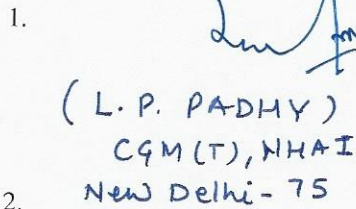 1.
( L. P. PADHY )
CGM (T), NHAI
New Delhi - 75
2.